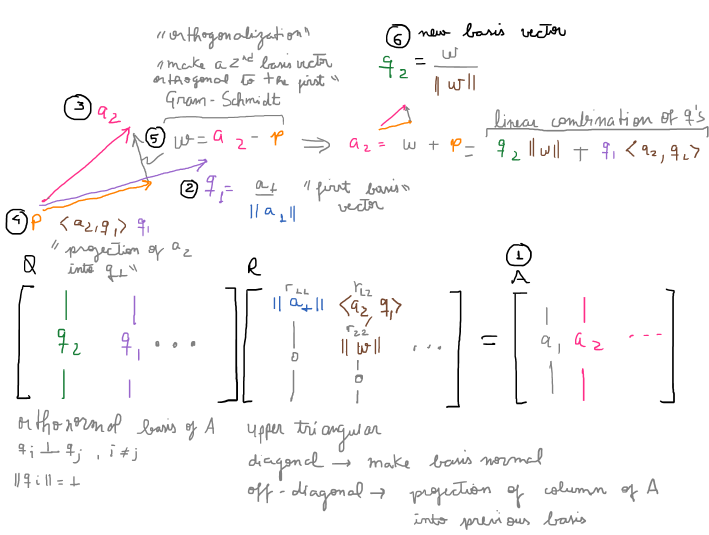 "orthogonalization"
"make a 2nd basis vector
orthogonal to the first"
Gram-Schmidt
⑥ new basis vector
q₂ = w / ||w||
③ a₂
⑤ w = a₂ - p ⇒ a₂ = w + p =
linear combination of q's
q₂ ||w|| + q₁ <a₂, q₁>
② q₁ = a₁ / ||a₁|| "first basis"
vector
④ p <a₂, q₁> q₁
"projection of a₂
into q₁"
Q R ① A
r₁₁ r₁₂
||a₁|| <a₂, q₁>
r₂₂
q₂ q₁ ... 0 ||w|| ... = a₁ a₂ ...
0
orthonormal basis of A
qᵢ ⊥ qⱼ, i ≠ j
||qᵢ|| = 1
upper triangular
diagonal → make basis normal
off-diagonal → projection of column of A
into previous basis